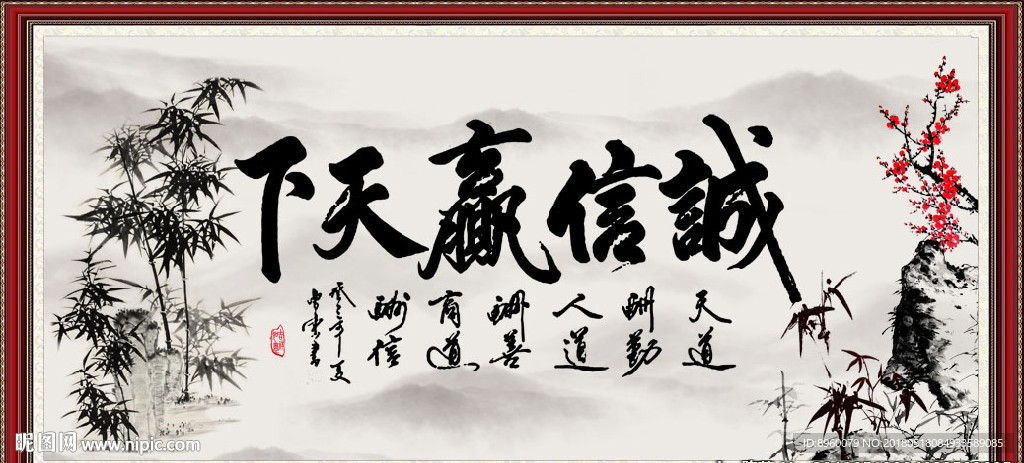 誠信贏天下
天道
酬勤
人道
酬善
商道
酬信
昵图网 www.nipic.com
ID:8960079 NO:20180918084933589085